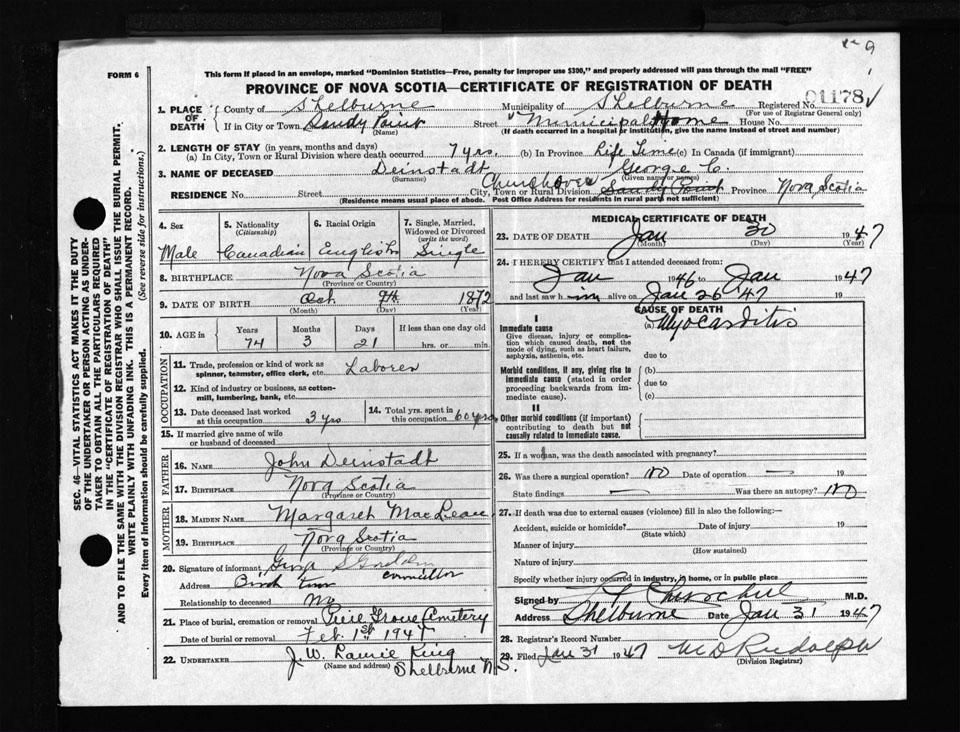 9
FORM 6
This form if placed in an envelope, marked "Dominion Statistics—Free, penalty for improper use $300," and properly addressed will pass through the mail "FREE"
PROVINCE OF NOVA SCOTIA—CERTIFICATE OF REGISTRATION OF DEATH
SEC. 46—VITAL STATISTICS ACT MAKES IT THE DUTY
OF THE UNDERTAKER OR PERSON ACTING AS UNDER-
TAKER TO OBTAIN ALL THE PARTICULARS REQUIRED
IN THE "CERTIFICATE OF REGISTRATION OF DEATH"
AND TO FILE THE SAME WITH THE DIVISION REGISTRAR WHO SHALL ISSUE THE BURIAL PERMIT.
WRITE PLAINLY WITH UNFADING INK. THIS IS A PERMANENT RECORD.
Every item of information should be carefully supplied. (See reverse side for instructions.)
1. PLACE OF DEATH
County of Shelburne Municipality of Shelburne Registered No. 01178
(For use of Registrar General only)
If in City or Town Sandy Point Street "Municipal Home House No.
(Name) (If death occurred in a hospital or institution, give the name instead of street and number)
2. LENGTH OF STAY (in years, months and days)
(a) In City, Town or Rural Division where death occurred 7 yrs. (b) In Province Life Time (c) In Canada (if immigrant)
3. NAME OF DECEASED Deinstadt George C.
(Surname) (Given name or names)
RESIDENCE No. Street City, Town or Rural Division Churchover Sandy Point Province Nova Scotia
(Residence means usual place of abode. Post Office Address for residents in rural parts not sufficient)
4. Sex
Male
5. Nationality
(Citizenship)
Canadian
6. Racial Origin
English
7. Single, Married, Widowed or Divorced
(write the word)
Single
8. BIRTHPLACE Nova Scotia
(Province or Country)
9. DATE OF BIRTH Oct. 9th 1872
(Month) (Day) (Year)
10. AGE in Years Months Days If less than one day old
74 3 21 hrs. or min.
OCCUPATION
11. Trade, profession or kind of work as spinner, teamster, office clerk, etc. Laborer
12. Kind of industry or business, as cotton-mill, lumbering, bank, etc.
13. Date deceased last worked at this occupation 3 yrs
14. Total yrs. spent in this occupation 60 yrs
15. If married give name of wife or husband of deceased
FATHER
16. NAME John Deinstadt
17. BIRTHPLACE Nova Scotia
(Province or Country)
MOTHER
18. MAIDEN NAME Margaret
19. BIRTHPLACE Nova Scotia
(Province or Country)
20. Signature of informant
councillor
Address Birch
Relationship to deceased No
21. Place of burial, cremation or removal Pine Grove Cemetery
Date of burial or removal Feb. 1st 1947
22. UNDERTAKER J. W. King
(Name and address) Shelburne N.S.
MEDICAL CERTIFICATE OF DEATH
23. DATE OF DEATH Jan 30 1947
(Month) (Day) (Year)
24. I HEREBY CERTIFY that I attended deceased from:
Jan 1946 to Jan 1947
and last saw h im alive on Jan 26 '47 19
CAUSE OF DEATH
I
Immediate cause
Give disease, injury or complication which caused death, not the mode of dying, such as heart failure, asphyxia, asthenia, etc.
(a) Myocarditis
due to
Morbid conditions, if any, giving rise to immediate cause (stated in order proceeding backwards from immediate cause).
(b)
due to
(c)
II
Other morbid conditions (if important) contributing to death but not causally related to immediate cause.
25. If a woman, was the death associated with pregnancy?
26. Was there a surgical operation? no Date of operation — 19
State findings — Was there an autopsy? no
27. If death was due to external causes (violence) fill in also the following:—
Accident, suicide or homicide? Date of injury 19
(State which)
Manner of injury
(How sustained)
Nature of injury
Specify whether injury occurred in industry, in home, or in public place
Signed by Churchill M.D.
Address Shelburne Date Jan 31 1947
28. Registrar's Record Number
29. Filed Jan 31 1947 M D Rudolph
(Division Registrar)